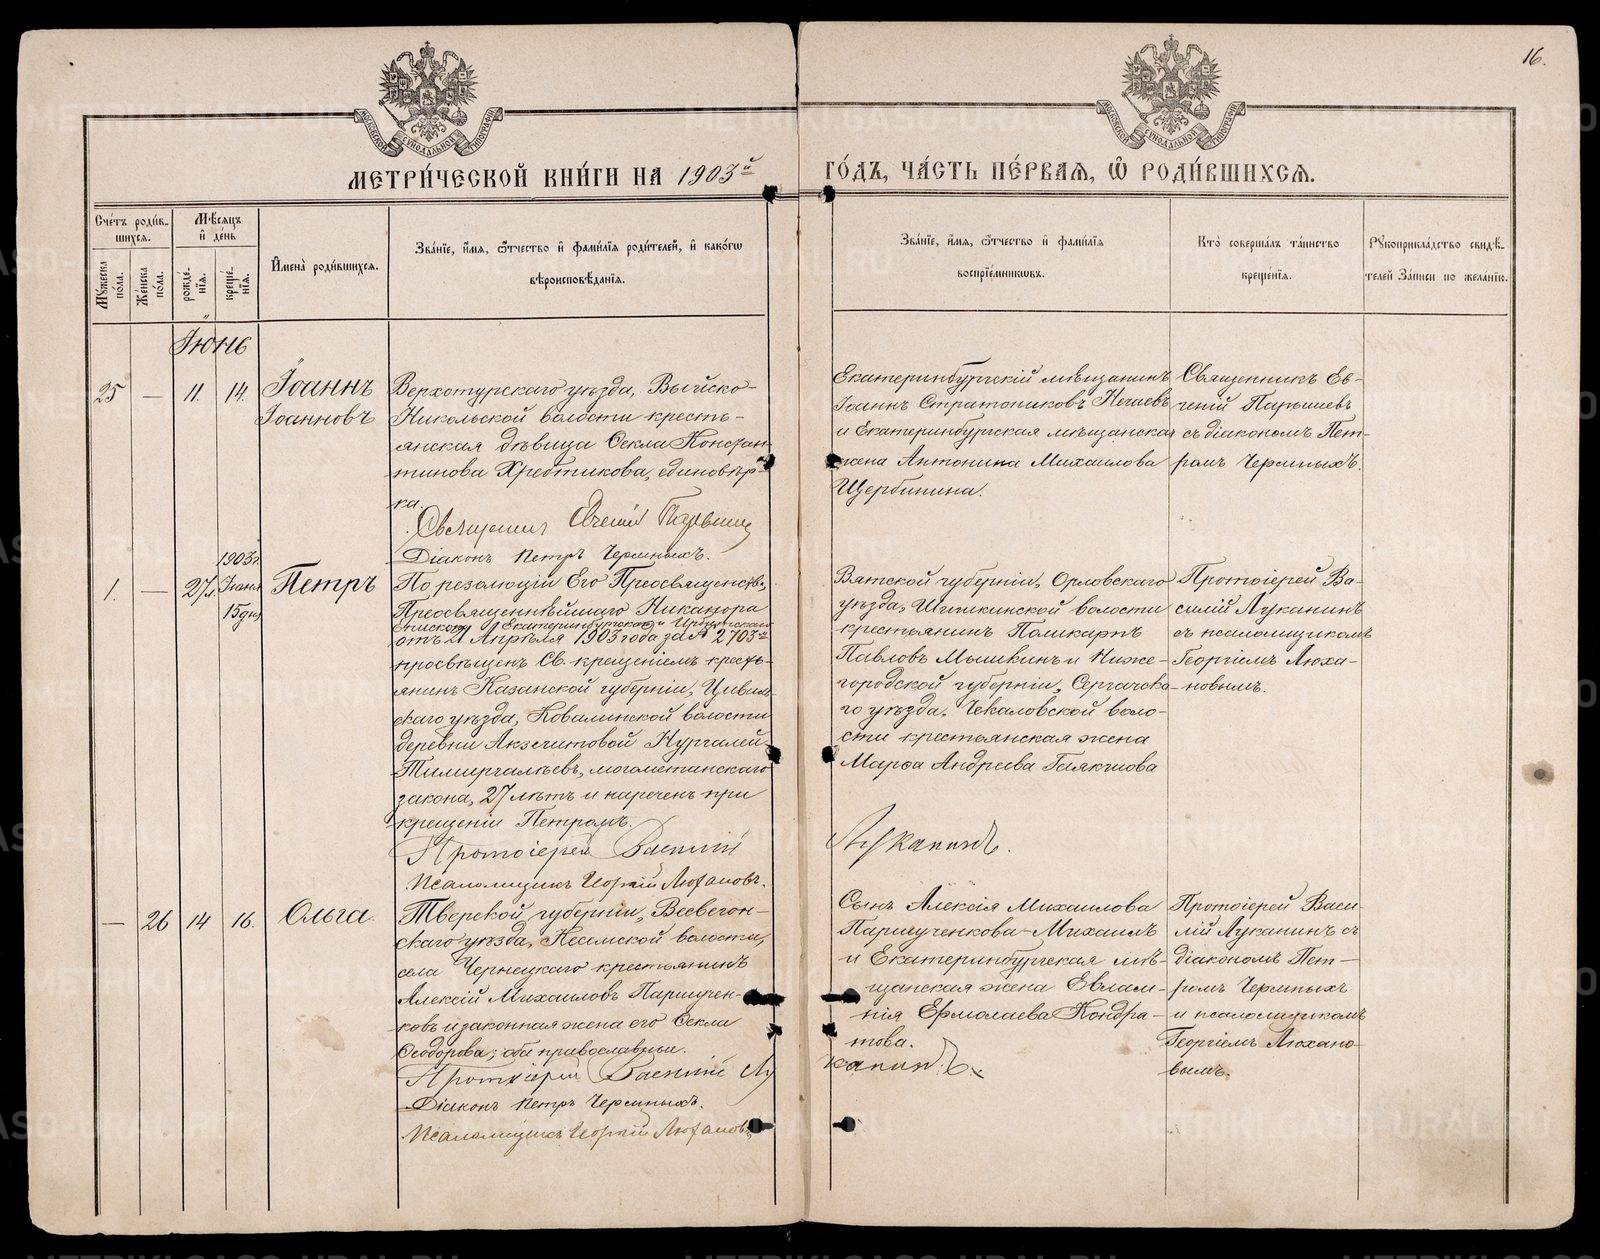 16.
МОСКОВСКОЙ СУНОДАЛЬНОЙ ТИПОГРАФІИ
МОСКОВСКОЙ СУНОДАЛЬНОЙ ТИПОГРАФІИ
МЕТРИ́ЧЕСКОЙ КНИ́ГИ НА 1903й
ГО́ДЪ, ЧА́СТЬ ПЕ́РВАѦ, Ѡ҆ РОДИ́ВШИХСѦ.
Сче́тъ роди́в-
шихсѧ.
Мꙋ́жеска по́ла.
Же́нска по́ла.
Мѣ́сѧцъ
и҆ де́нь
рожде́-
нїѧ.
креще́-
нїѧ.
И҆мена̀ роди́вшихсѧ.
Зва́нїе, и҆́мѧ, ѻ҆́тчество и҆ фами́лїѧ роди́телей, и҆ како́гѡ
вѣроисповѣ́данїѧ.
Зва́нїе, и҆́мѧ, ѻ҆́тчество и҆ фами́лїѧ
воспрїе́мникѡвъ.
Кто̀ соверша́лъ та́инство
креще́нїѧ.
Рꙋкоприкла́дство свидѣ́-
телей за́писи по жела́нїю.
Іюнь
25 — 11. 14. Іоаннъ
Іоанновъ
Верхотурскаго уѣзда, Выйско-
Никольской волости кресть-
янская дѣвица Ѳекла Констан-
тинова Хребтикова, единовѣр-
ка.
Священник Евгеній Парышев
Діаконъ Петръ Чермныхъ.
Екатеринбургскій мѣщанинъ
Іоаннъ Стратониковъ Нечаевъ
и Екатеринбургская мѣщанская
жена Антонина Михаилова
Щербинина.
Священникъ Ев-
геній Парышевъ
съ діакономъ Пет-
ромъ Чермныхъ.
1. — 27л. 1903г.
Іюня
15 дня
Петръ
По резолюціи Его Преосвященства,
Преосвященнѣйшаго Никанора
Епископа Екатеринбургскаго и Ирбитскаго
отъ 21 Апрѣля 1903 года за № 2703мъ
просвѣщенъ Св. крещеніемъ кресть-
янинъ Казанской губерніи, Цивиль-
скаго уѣзда, Ковалинской волости
деревни Акзегитовой Нургалей
Тимиргалѣевъ, могометанскаго
закона, 27 лѣтъ и нареченъ при
крещеніи Петромъ.
Протоіерей Василій
Луканинъ.
Псаломщикъ Георгій Люхановъ.
Вятской губерніи, Орловскаго
уѣзда, Шишкинской волости
крестьянинъ Поликарпъ
Павловъ Мышкинъ и Ниже-
городской губерніи, Сергачска-
го уѣзда, Чекаловской воло-
сти крестьянская жена
Марѳа Андреева
Протоіерей Ва-
силій Луканинъ
съ псаломщикомъ
Георгіемъ Люха-
новымъ.
— 26 14 16. Ольга.
Тверской губерніи, Весьегон-
скаго уѣзда, Кесемской волости,
села Чернецкаго крестьянинъ
Алексій Михаиловъ Паршучен-
ковъ и законная жена его Ѳекла
Ѳеодорова; оба православные.
Протоіерей Василій Лу
канинъ.
Діаконъ Петръ Чермныхъ.
Псаломщикъ Георгій Люхановъ
Сынъ Алексія Михаилова
Паршученкова Михаилъ
и Екатеринбургская мѣ-
щанская жена Евлам-
пія Ермолаева Кондра-
това.
Протоіерей Васи-
лій Луканинъ съ
діакономъ Пет-
ромъ Чермныхъ
и псаломщикомъ
Георгіемъ Люхано-
вымъ.
METRIKI.GASO-URAL.RU